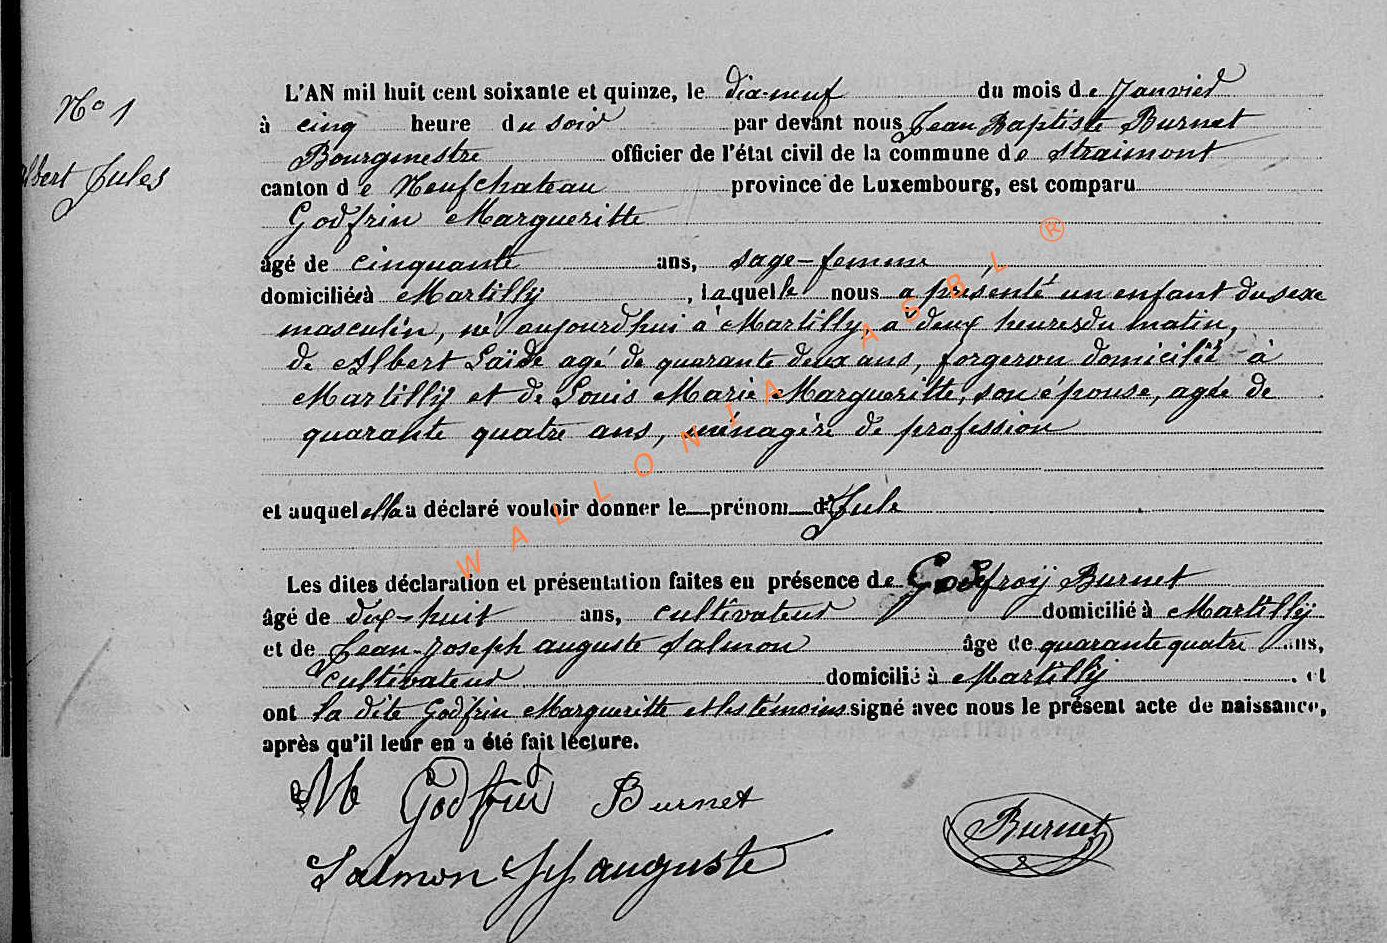 N° 1
Albert Jules
L'AN mil huit cent soixante et quinze, le dix-neuf du mois de Janvier
à cinq heure du soir par devant nous Jean Baptiste Burnet
Bourgmestre officier de l'état civil de la commune de Straimont
canton de Neufchateau province de Luxembourg, est comparu
Godfrin Margueritte
âgé de cinquante ans, sage-femme,
domiciliée à Martilly, laquelle nous a présenté un enfant du sexe
masculin, né aujourd'hui à Martilly, à deux heures du matin,
de Albert Laïde agé de quarante deux ans, forgeron domicilié à
Martilly et de Louis Marie Margueritte, son épouse, agée de
quarante quatre ans, ménagère de profession
et auquel elle a déclaré vouloir donner le prénom de Jule
Les dites déclaration et présentation faites en présence de Godefroÿ Burnet
âgé de dix-huit ans, cultivateur domicilié à Martilly
et de Jean-Joseph auguste Salmon âgé de quarante quatre ans,
cultivateur domicilié à Martilly. et
ont la dite Godfrin Margueritte et les témoins signé avec nous le présent acte de naissance,
après qu'il leur en a été fait lecture.
M Godfrin Burnet
Burnet
Salmon JJ auguste
WALLONIA ASBL ®